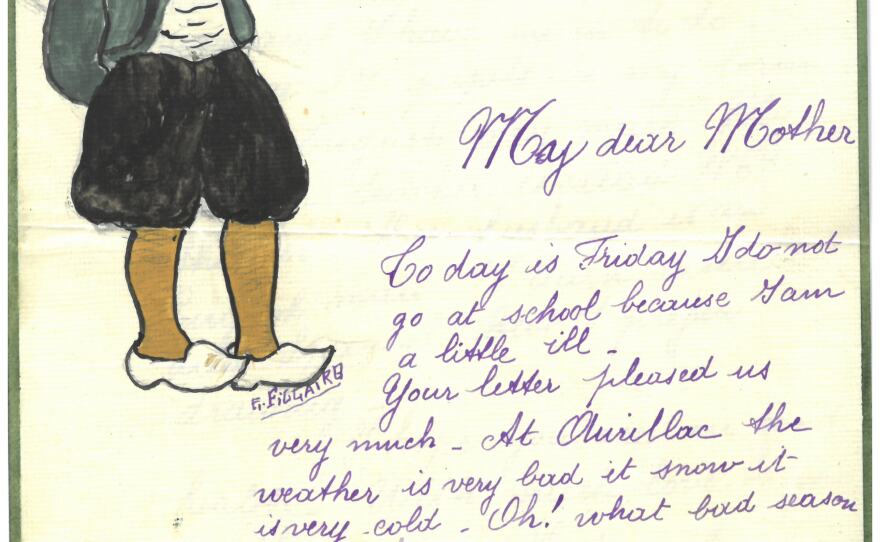 May dear Mother
To day is Friday I do not
go at school because I am
a little ill -
Your letter pleased us
very much - At Aurillac the
weather is very bad it snow it
is very cold - Oh! what bad season